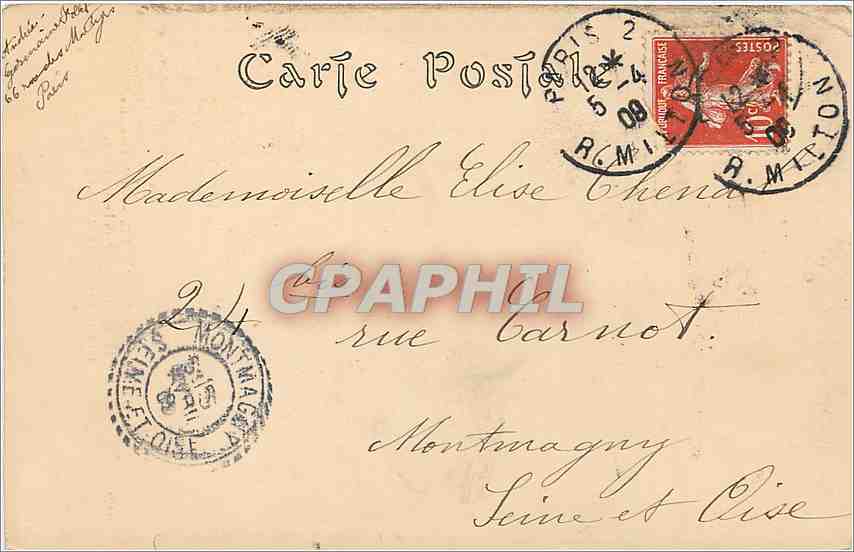 Germaine
66 rue des Martyrs
Paris
Carte Postale
PARIS 2
12
5 -4
09
R. MILTON
RÉPUBLIQUE FRANÇAISE
POSTES
10
R. MILTON
Mademoiselle Elise Chena
CPAPHIL
24 bis rue Carnot
MONTMAGNY
SEINE-ET-OISE
Montmagny
Seine et Oise